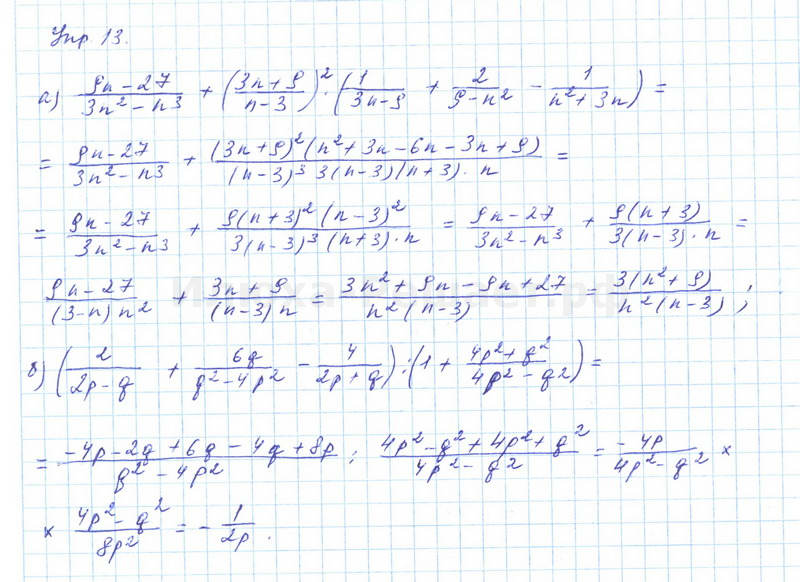 Упр 13.
а) (9n-27)/(3n²-n³) + ((3n+9)/(n-3))² · (1/(3n-9) + 2/(9-n²) - 1/(n²+3n)) =
= (9n-27)/(3n²-n³) + ((3n+9)²(n²+3n-6n-3n+9))/((n-3)³ 3(n-3)(n+3)·n) =
= (9n-27)/(3n²-n³) + (9(n+3)²(n-3)²)/(3(n-3)³(n+3)·n) = (9n-27)/(3n²-n³) + (9(n+3))/(3(n-3)·n) =
(9n-27)/((3-n)n²) + (3n+9)/((n-3)n) = (3n²+9n-9n+27)/(n²(n-3)) = (3(n²+9))/(n²(n-3)) ;
б) (2/(2p-q) + 6q/(q²-4p²) - 4/(2p+q)) : (1 + (4p²+q²)/(4p²-q²)) =
= (-4p-2q+6q-4q+8p)/(q²-4p²) ; (4p²-q²+4p²+q²)/(4p²-q²) = (-4p)/(4p²-q²) ×
× (4p²-q²)/(8p²) = - 1/(2p).